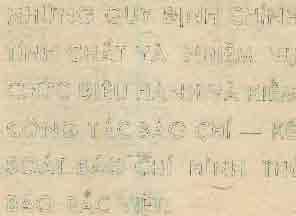 NHỮNG QUY ĐỊNH CHÍNH
TÍNH CHẤT VÀ NHIỆM VỤ
CHỨC ĐIỀU HÀNH VÀ KIỂM
CÔNG TÁC BÁO CHÍ — KẾ
SOÁT BÁO CHÍ HÌNH THỨ
BÁO BẮC VIỆT.